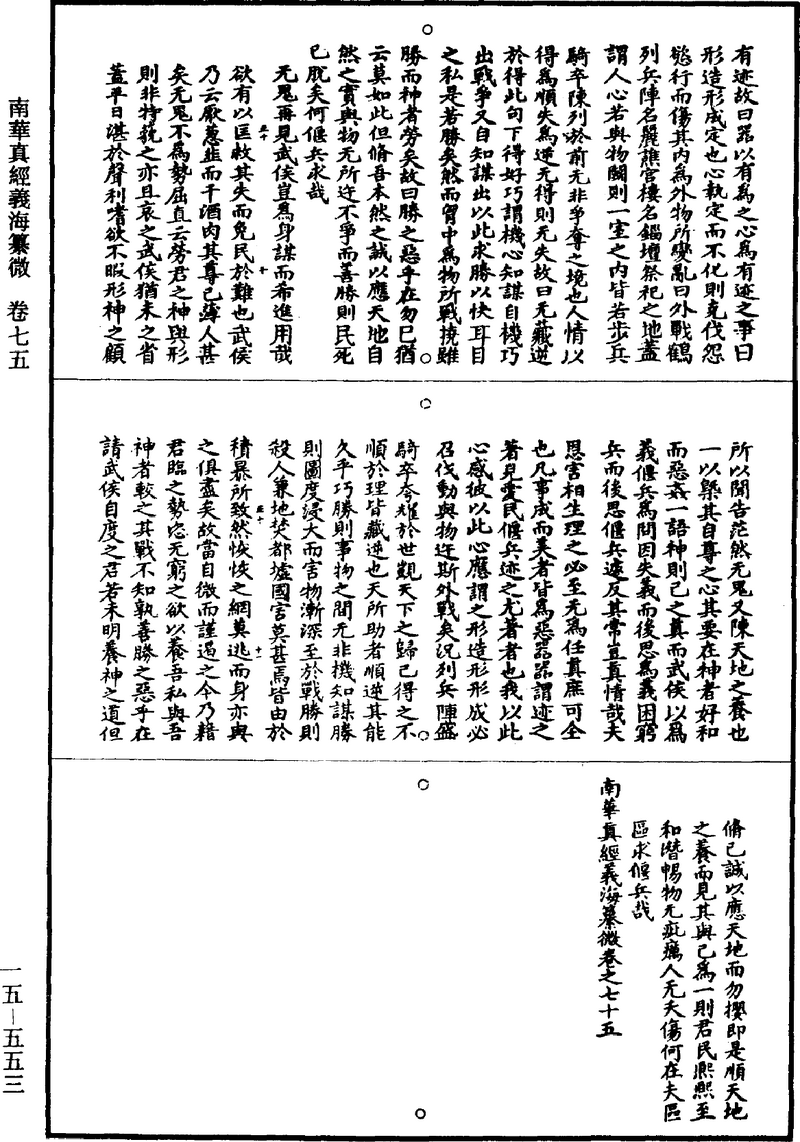 有迹故曰器以有為之心為有迹之事曰
形造形成定也心執定而不化則克伐怨
慾行而傷其内為外物所變亂曰外戰鶴
列兵陣名麗譙宮樓名錙壇祭祀之地蓋
謂人心若與物鬭則一室之内皆若步兵
騎卒陳列於前无非爭奪之境也人情以
得為順失為逆无得則无失故曰无藏逆
於得此句下得好巧謂機心知謀自機巧
出戰爭又自知謀出以此求勝以快耳目
之私是若勝矣然而胷中為物所戰撓雖
勝而神者勞矣故曰勝之惡乎在勿已猶
云莫如此但脩吾本然之誠以應天地自
然之實與物无所迕不爭而善勝則民死
已脫矣何偃兵求哉
无鬼再見武侯豈為身謀而希進用哉
欲有以匡救其失而免民於難也武侯
乃云厭葱韭而干酒肉其尊已薄人甚
矣无鬼不為勢屈直云勞君之神與形
則非特藐之亦且哀之武侯猶未之省
蓋平日湛於聲利嗜欲不暇形神之顧
所以聞告茫然无鬼又陳天地之養也
一以槩其自尊之心其要在神者好和
而惡姦一語神則已之真而武侯以為
義偃兵為問因失義而後思為義困窮
兵而後思偃兵遽反其常豈真情哉夫
恩害相生理之必至无為任真庶可全
也凡事成而美者皆為惡器器謂迹之
著見愛民偃兵迹之尤著者也我以此
心感彼以此心應謂之形造形形成必
召伐動與物迕斯外戰矣況列兵陣盛
騎卒夸耀於世觀天下之歸已得之不
順於理皆藏逆也天所助者順逆其能
久乎巧勝則事物之間无非機知謀勝
則圖度浸大而害物漸深至於戰勝則
殺人兼地焚都墟國害莫甚焉皆由於
積暴所致然恢恢之網莫逃而身亦與
之俱盡矣故當自微而謹遏之今乃藉
君臨之勢恣无窮之欲以養吾私與吾
神者較之其戰不知孰善勝之惡乎在
請武侯自度之君若未明養神之道但
脩已誠以應天地而勿攖即是順天地
之養而見其與已為一則君民熙熙至
和潛暢物无疵癘人无夭傷何在夫區
區求偃兵哉
南華真經義海纂微卷之七十五
南華真經義海纂微 卷七五
一五－五五三